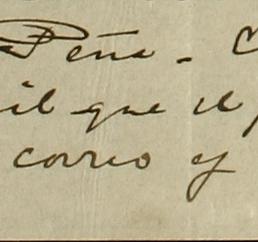 Peña -
il que el
correo y